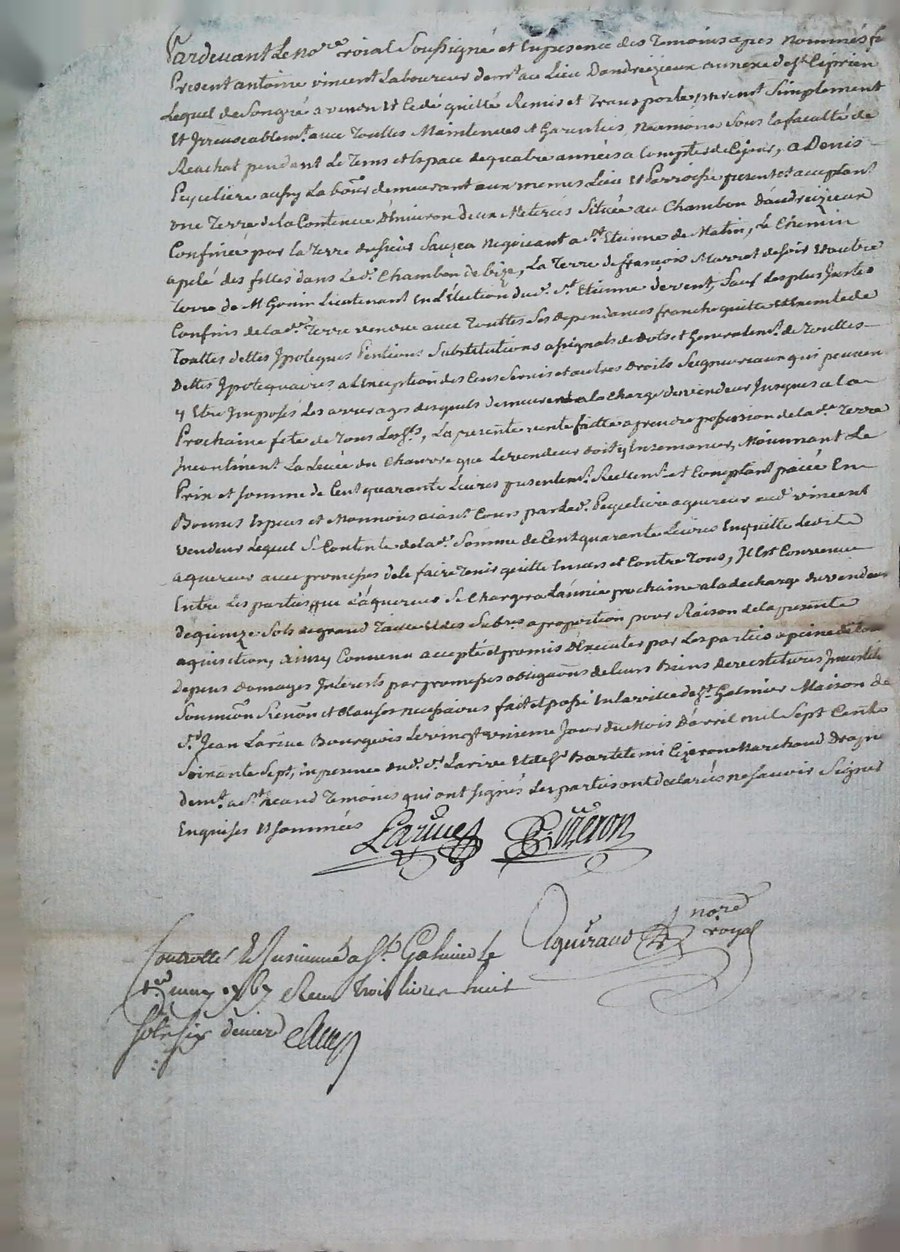 Pardevant Le no.re roial Soussigné et Enpresence des Temoins apres Nommés fû
Present antoine vincent Laboureur dem.t au Lieu Dandrezieux annexe de S.t Ciprien
Lequel de Son gré a vendu Et Cedé quitté Remis et Transporté purem.t Simplement
Et Irrevocablem.t avec Touttes Maintenues et Garenties, Neanmoins Sous la faculté de
Reachat pendant Le Tems et Espace de quatre années a Compter de Cejour, a Denis
Peyeliere aussy La bour demeurant aux memes Lieu et Parroisse present et acceptant
une Terre de la Contenue d'Environ deux Meterés Située au Chambon d'audrezieux
Confinée par la Terre du Sieur Sauzea negotiant a S.t Etienne de Matin, Le Chemin
apelé des filles dans Led. Chambon de bize, La Terre de françois Marret de soir et autre
Terre de M. Gonin Lieutenant en L'Election dud. S.t Etienne de vent, Sauf Les plus Justes
Confins de lad.e Terre vendue avec Touttes Ses dependances franche quitte et Exemte de
Touttes dettes Ipoteques Pentions Substitutions assignats de Dots et Generalem.t de Touttes
Dettes Ipotequaires a L'exception des Cens Servis et autres Droits Seigneuriaux qui peuvent
y Etre Imposés Les arrerages desquels demeurent a la Charge du vendeur Jusques a la
Prochaine fete de Tous Les S.ts, La presente vente faitte a prendre possession de lad.e Terre
Incontinent La Levée du Chanvre que Le vendeur doit y Ensemancer, Moiennant Le
Prix et somme de Cent quarante Livres presentem.t Reellem.t et Comptant paiée En
Bonnes Especes et Monnois aiant Cours par led. Peyeliere aquereur aud. vincent
vendeur Lequel Se Contente de la d. Somme de Cent quarante Livres En quitte Ledite
aquereur avec promesses de le faire Tenir quitte Envers et Contre Tous, Il Est Convenu
Entre Les parties que L'aquereur Se Chargera L'année prochaine a la decharge du vendeur
de quinze Sols de grand Taille Et des Subres a proportion pour Raison de la presente
aquisition, ainsy Convenu accepté et promis d'Executer par Les parties a peine de Tous
depens domages Interests par promesses obligaôns de Leurs Biens de restitures
Soumiôn Renôn et Clauses necessaires fait et passé En la ville de S.t Galmier Maison de
S.r Jean Larive Bourgeois Le vingt unieme Jour du Mois D'avril mil Sept Cents
Soixante Sept, in presence dud. S.r Larive Et de S.r Bartelemi Cizeron Marchand Drapier
dem.t a S.t heand Temoins qui ont signés Les parties ont declarées ne Savoir Signer
Enquises Et sommées
Larive Cizeron
Aguiraud nore royal
Controllé Et Insinué a S.t Galmier le
may 1767 Reçu Trois livres huit
Sols six deniers